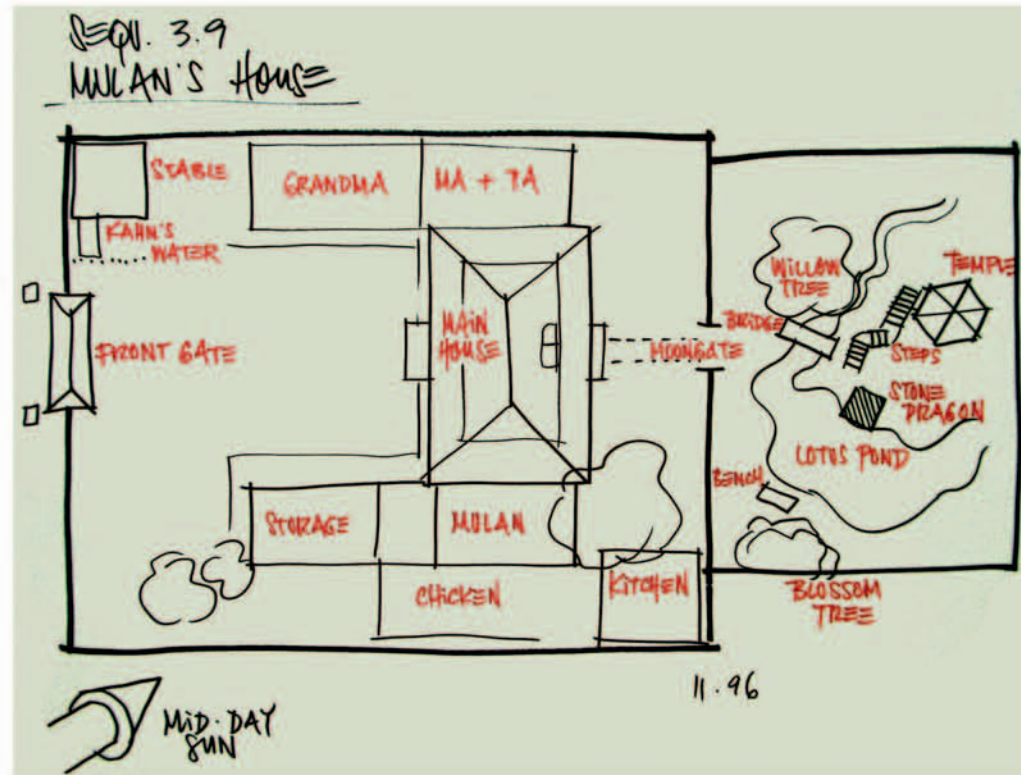 SEQU. 3.9
MULAN'S HOUSE
STABLE
GRANDMA
MA + PA
KAHN'S
WATER
FRONT GATE
MAIN
HOUSE
MOONGATE
WILLOW
TREE
TEMPLE
BRIDGE
STEPS
STONE
DRAGON
LOTUS POND
BENCH
STORAGE
MULAN
CHICKEN
KITCHEN
BLOSSOM
TREE
11.96
MID.DAY
SUN